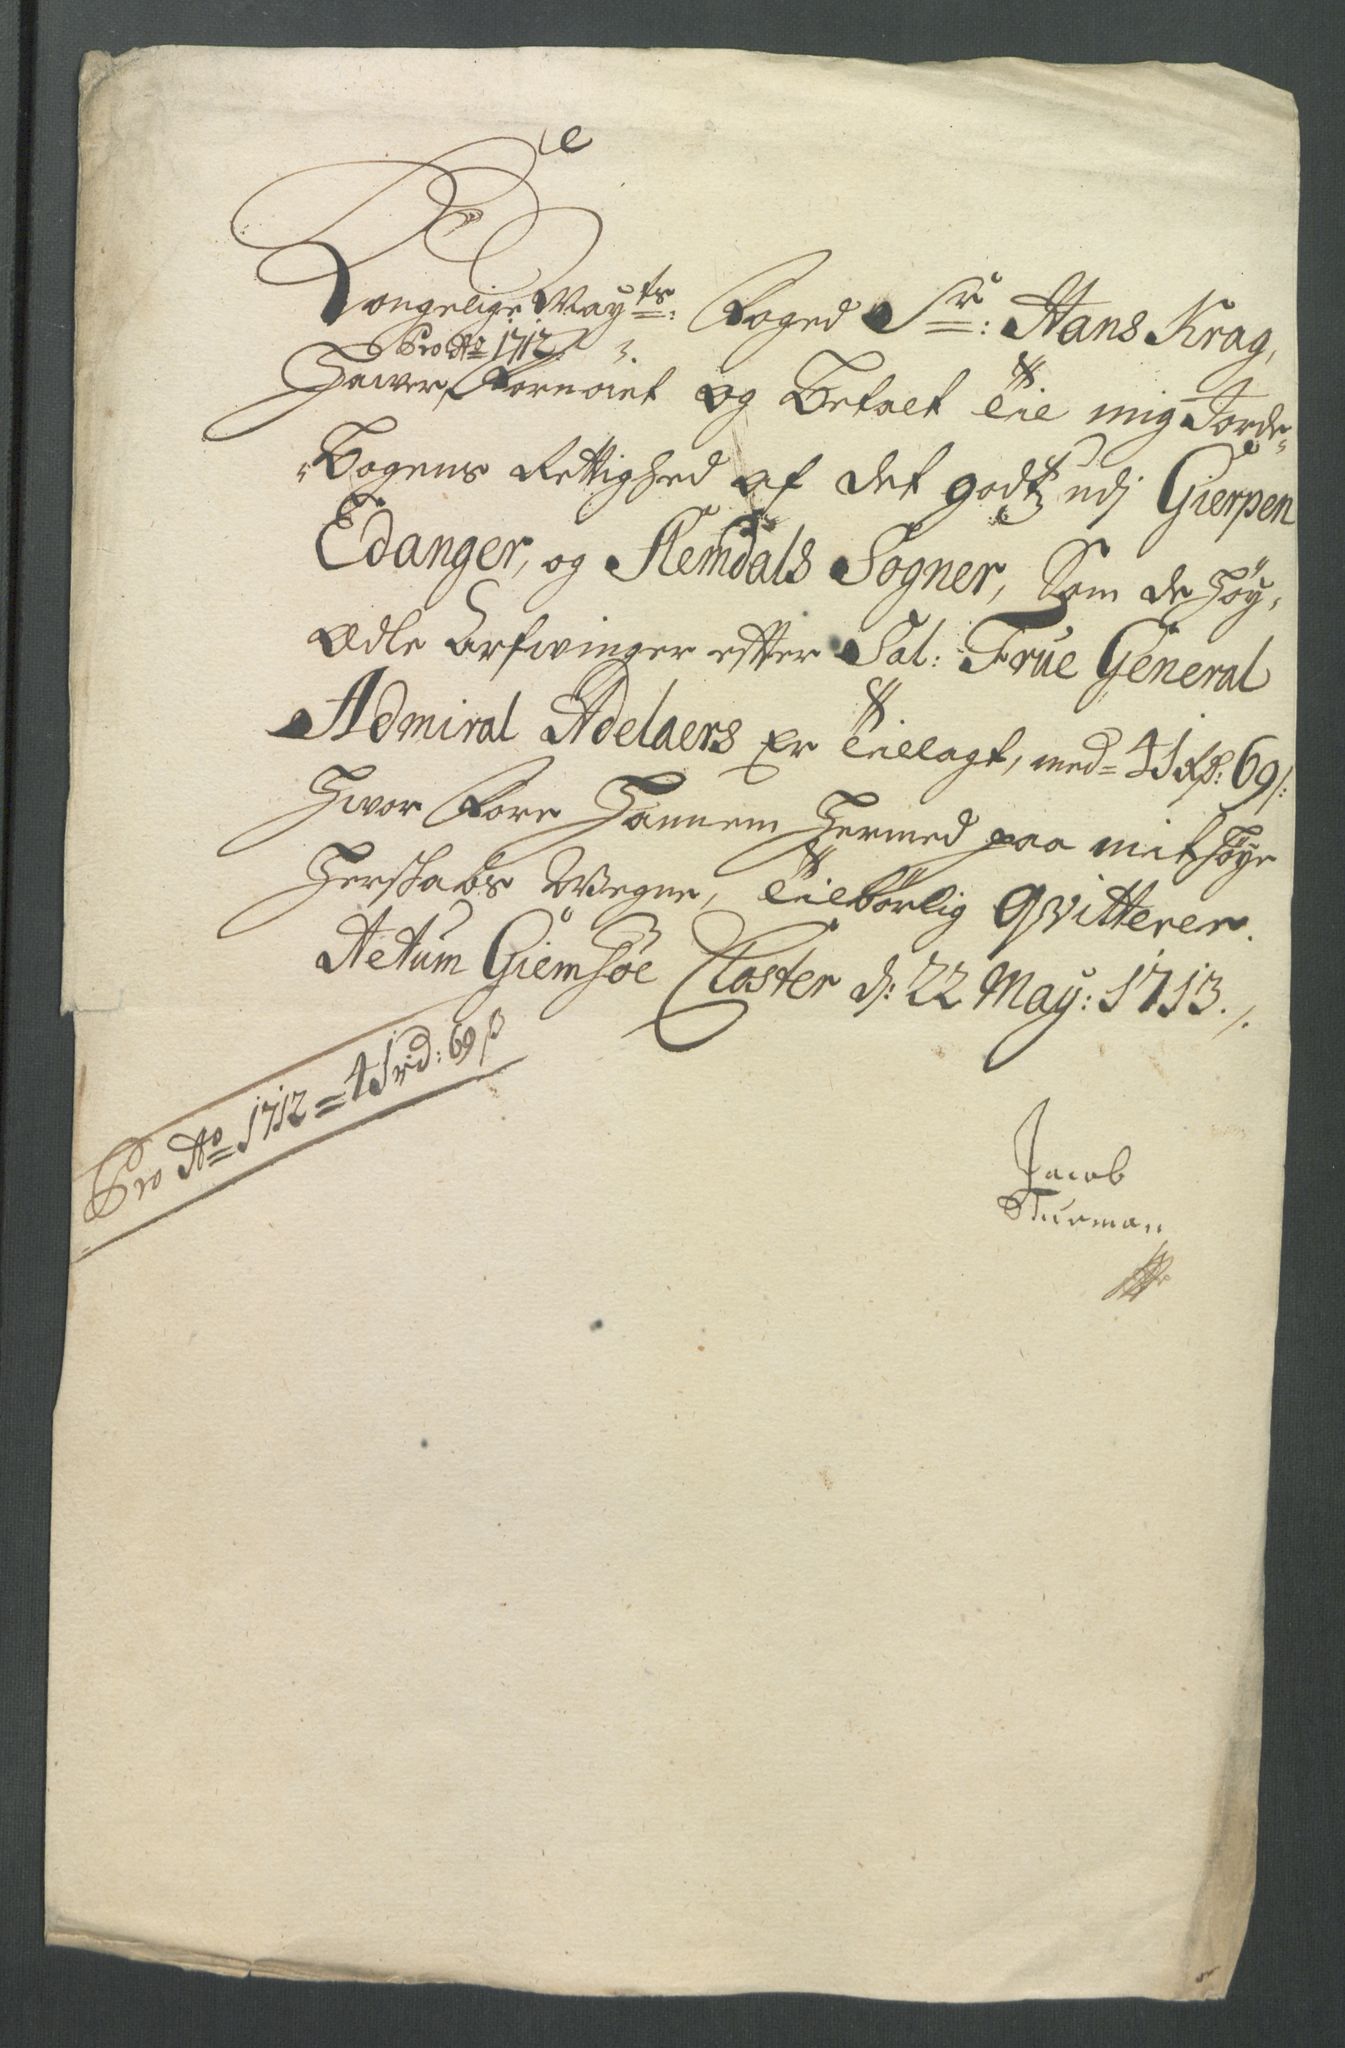 Kongelige Mayts: Foged Sr: Hans Krag,
Pro Ao 1712
Hawer Fornøiet og Betalt til mig Jorde-
Bogens Rettighed af det godtz udj Gierpen
Edanger, og Slemdals Sogner, Som de Høy,
Ædle Arfwinger efter Sal: Frue General
Admiral Adelaers Er tillagt, med 41 Rd: 69 s:
Hwor Fore Hannem Hermed paa mit høye
Herskabs Wegne, tilbørlig qvitterer.
Actum Giemsøe Closter d: 22 May: 1713./.
Pro Ao 1712 = 41 rd: 69 β
Jacob
Sturman